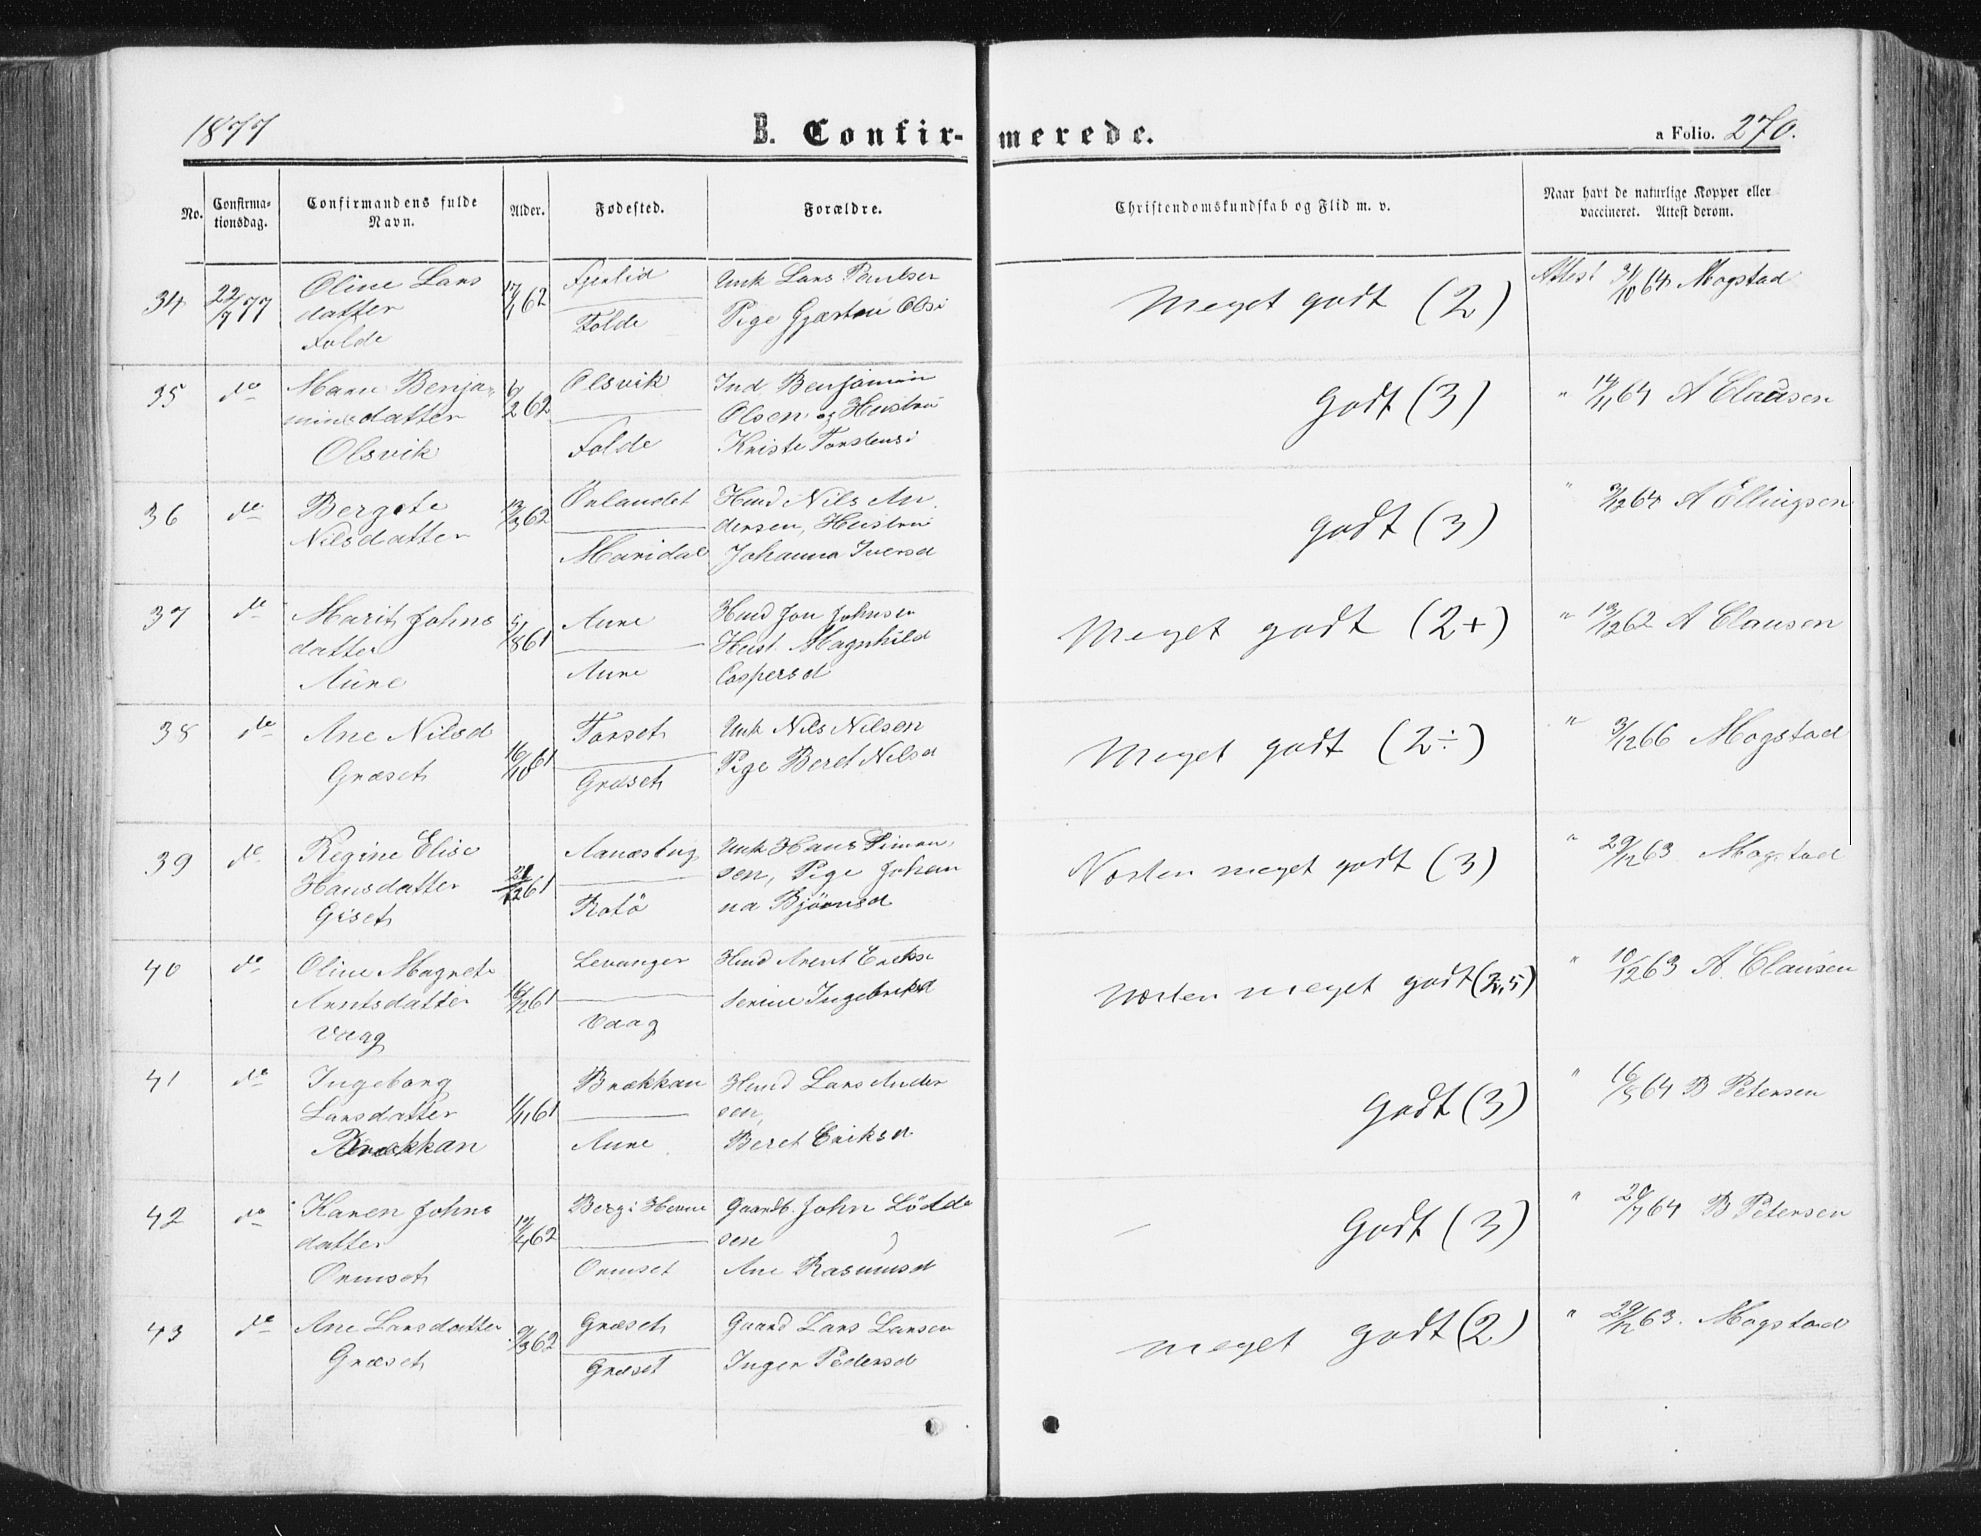 1877
B. Confir-
merede.
a Folio. 270.
No.
Confirma-
tionsdag.
Confirmandens fulde
Navn.
Alder.
Fødested.
Forældre.
Christendomskundskab og Flid m. v.
Naar havt de naturlige Kopper eller
vaccineret. Attest derom.
34 22/7 77 Oline Lars
datter
Folde
17/1 62
Fjerlid
Folde
Unk Lars Paulsen
Pige Gjertru Olsd
Meget godt (2)
Attest 31/10 64 Mogstad
35 do Maren Benja-
minsdatter
Olsvik
6/2 62
Olsvik
Folde
Ind Benjamin
Olsen og Hustru
Kriste Torstensd
Godt (3)
" 14/11 64 A Clausen
36 do Bergete
Nilsdatter
13/3 62
Örlandet
Maridal
Husd Nils An
dersen, Hustru
Johanna Iversd
godt (3)
" 2/12 64 A Ellingsen
37 do Marit Johns
datter
Aune
5/8 61
Aune
Aune
Husd Jon Johnsen
Hust. Magnhild
Caspersd
Meget godt (2+)
" 13/12 62 A Clausen
38 do Ane Nilsd
Græset
16/10 61
Torset
Græset
Unk Nils Nilsen
Pige Beret Nilsd
Meget godt (2÷)
" 3/12 66 Mogstad
39 do Regine Elise
Hansdatter
Giset
21/12 61
Aanæstug
Rotö
Unk Hans Simon-
sen, Pige Johan
na Bjørnsd
Næsten meget godt (3)
" 29/12 63 Mogstad
40 do Oline Magrete
Arntsdatter
Vaag
16/12 61
Levanger
Vaag
Husd Arent Eriks
Serine Ingebrigtsd
Næsten meget godt (2,5)
" 10/12 63 A. Clausen
41 do Ingeborg
Larsdatter
Brækkan
1/11 61
Brækkan
Aune
Husd Lars Ander
sen,
Beret Eriksd
Godt (3)
" 16/5 64 B Petersen
42 do Karen Johns
datter
Ormset
17/4 62
Berg i Hevne
Ormset
Gaardb. John Lödda
sen
Ane Rasmusd
Godt (3)
" 20/7 64 B Petersen
43 do Ane Larsdatter
Græset
9/3 62
Græset
Græset
Gaard Lars Larsen
Inger Pedersd
meget godt (2)
" 29/12 63. Mogstad